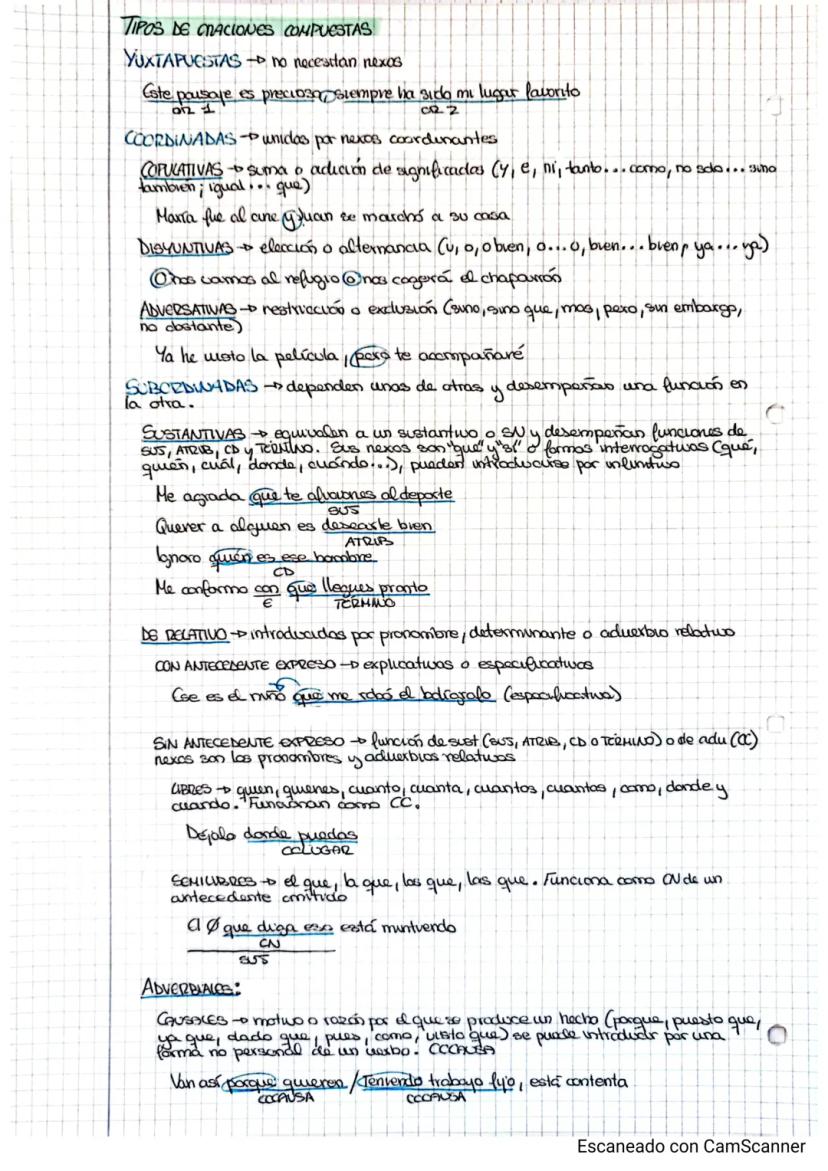 TIPOS DE ORACIONES COMPUESTAS
YUXTAPUESTAS → no necesitan nexos
Este paisaje es precioso, siempre ha sido mi lugar favorito
OR 1 OR 2
COORDINADAS → unidas por nexos coordinantes
COPULATIVAS → suma o adición de significados (y, e, ni, tanto... como, no solo... sino
también; igual... que)
María fue al cine y Juan se marchó a su casa
DISYUNTIVAS → elección o alternancia (u, o, o bien, o...o, bien...bien, ya...ya)
O nos vamos al refugio o nos cogerá el chaparrón
ADVERSATIVAS → restricción o exclusión (sino, sino que, mas, pero, sin embargo,
no obstante)
Ya he visto la película, pero te acompañaré
SUBORDINADAS → dependen unas de otras y desempeñan una función en
la otra.
SUSTANTIVAS → equivalen a un sustantivo o SN y desempeñan funciones de
SUS, ATRIB, CD y TÉRMINO. Sus nexos son "que" y "si" o formas interrogativas (qué,
quién, cuál, donde, cuándo...), pueden introducirse por infinitivo
Me agrada que te aficiones al deporte
SUS
Querer a alguien es desearle bien
ATRIB
Ignoro quién es ese hombre
CD
Me conformo con que llegues pronto
E TÉRMINO
DE RELATIVO → introducidas por pronombre, determinante o adverbio relativo
CON ANTECEDENTE EXPRESO → explicativas o especificativas
Ese es el niño que me robó el bolígrafo (especificativa)
SIN ANTECEDENTE EXPRESO → función de sust (SUS, ATRIB, CD O TÉRMINO) o de adv (CC)
nexos son los pronombres y adverbios relativos
LIBRES → quien, quienes, cuanto, cuanta, cuantos, cuantas, como, donde y
cuando. Funcionan como CC.
Déjalo donde puedas
CCLUGAR
SEMILIBRES → el que, la que, los que, las que. Funciona como CN de un
antecedente omitido
El Ø que diga eso está mintiendo
CN
SUS
ADVERBIALES:
CAUSALES → motivo o razón por el que se produce un hecho (porque, puesto que,
ya que, dado que, pues, como, visto que) se puede introducir por una
forma no personal de un verbo. CCCAUSA
Van así porque quieren / Teniendo trabajo fijo, está contenta
CCCAUSA CCCAUSA
Escaneado con CamScanner